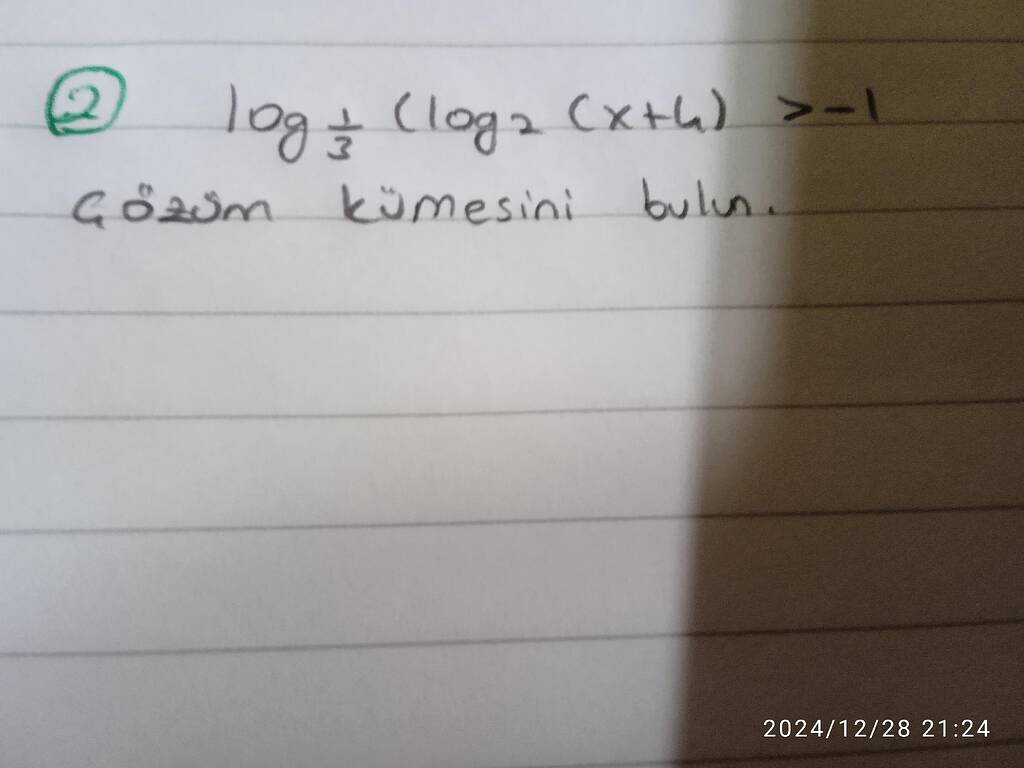 2 log 1/3 (log2 (x+4) > -1
Çözüm kümesini bulun.
2024/12/28 21:24